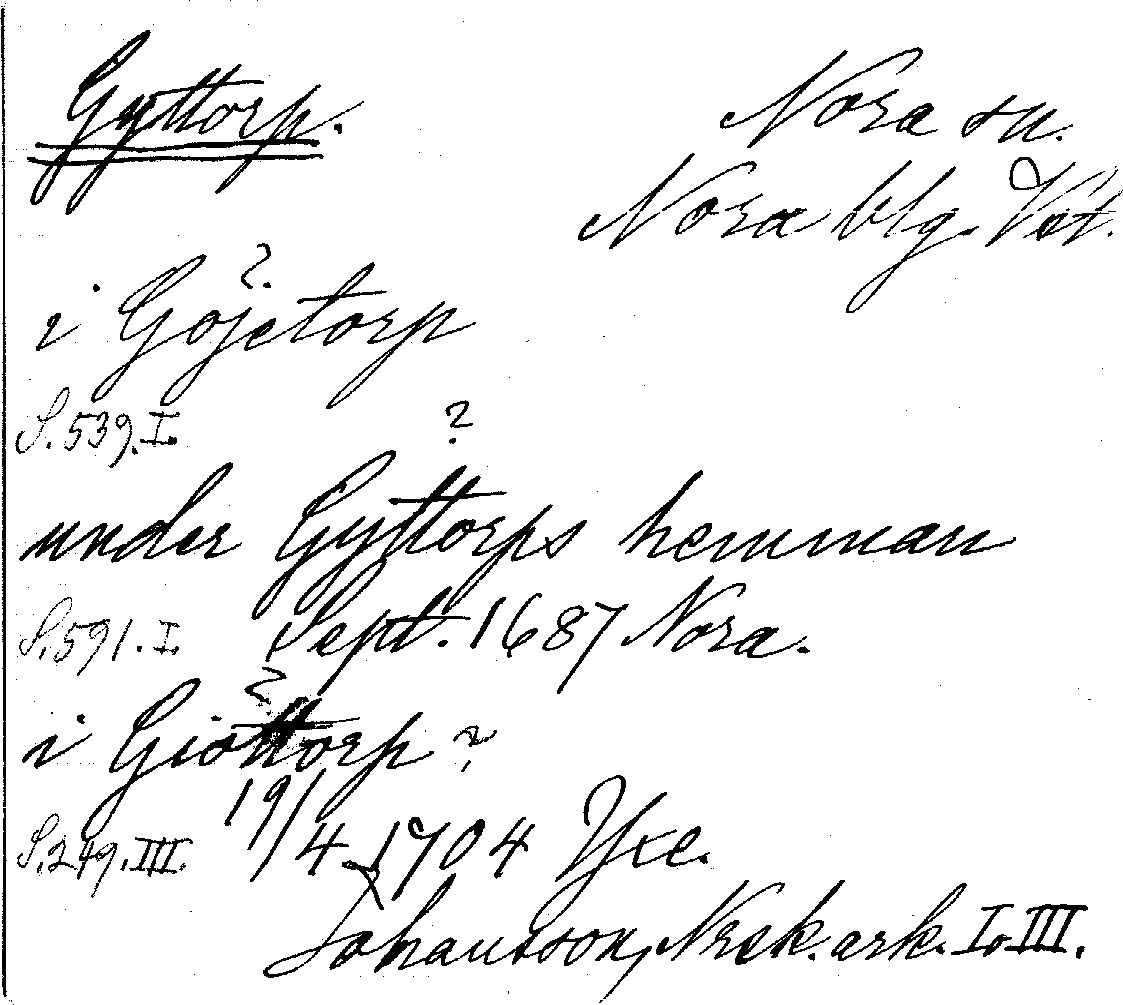 Gyttorp.
Nora sn.
Nora blg. Vst.
?
i Göjetorp
S. 539. I.
?
under Gyttorps hemman
S. 591. I. Sept. 1687 Nora.
?
i Giöttorp ?
S. 249. III. 19/4 1704 Yxe.
Johansson, Nrek. ark. I. III.